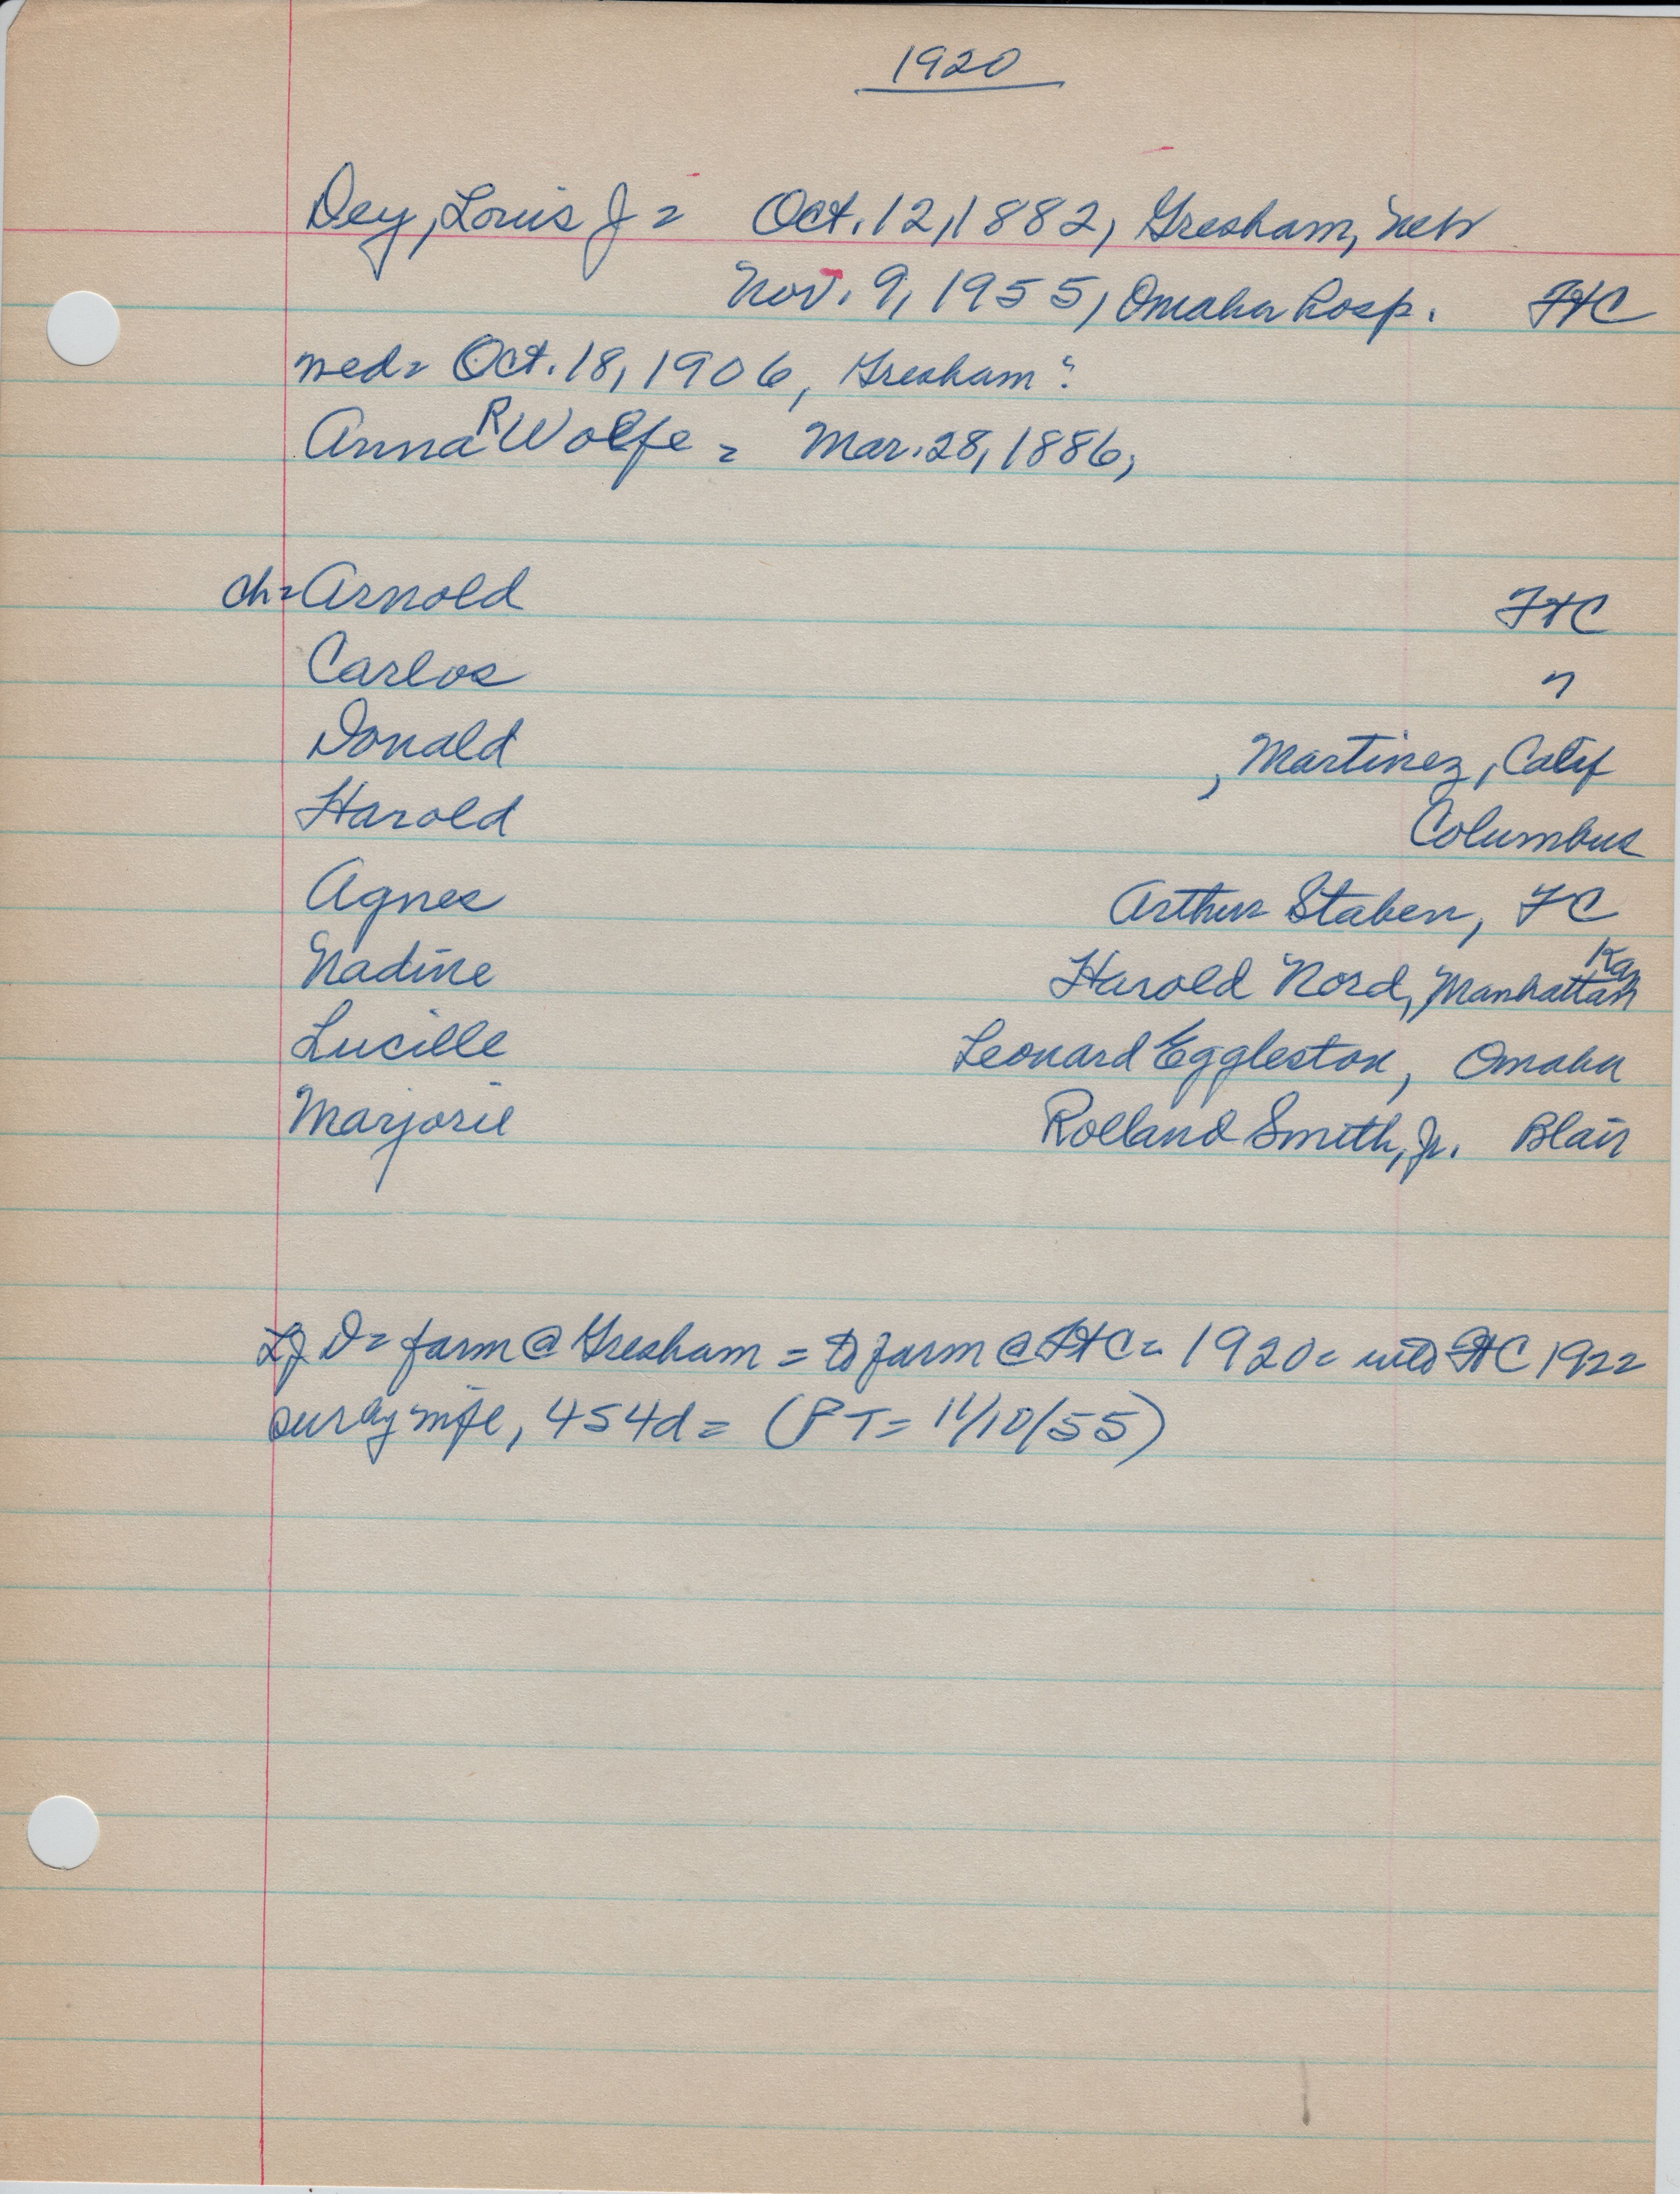 1920
Dey, Louis J = Oct. 12, 1882, Gresham, Neb
Nov. 9, 1955, Omaha hosp. FtC
wed = Oct. 18, 1906, Gresham ?
Anna R Wolfe = Mar. 28, 1886,
ch = Arnold FtC
Carlos "
Donald , Martinez, Calif
Harold Columbus
Agnes Arthur Staben, FC
Nadine Harold Nord, Manhattan Kan
Lucille Leonard Eggleston, Omaha
Marjorie Rolland Smith, Jr. Blair
LJ D = farm @ Gresham = to farm @ FtC = 1920 = into FtC 1922
surv by wife, 4s4d = (PT = 11/10/55)